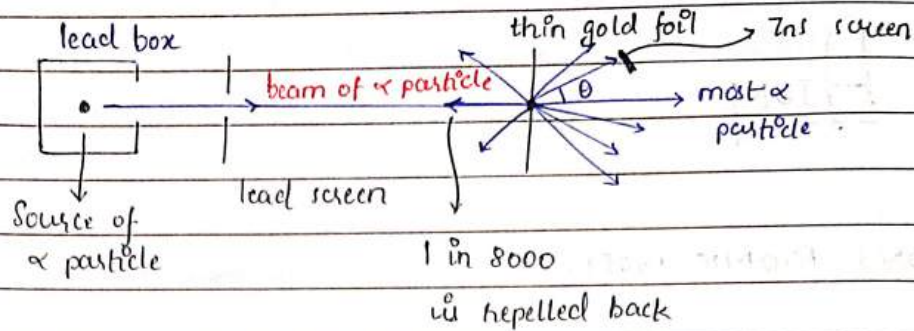 lead box
thin gold foil
Zns screen
beam of α particle
θ
most α
particle
lead screen
Source of
α particle
1 in 8000
is repelled back